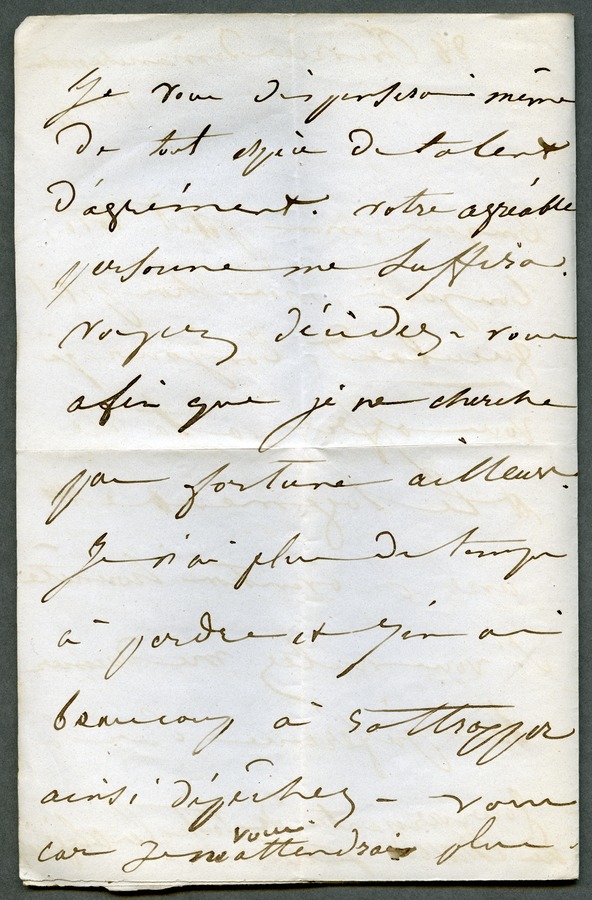 Je vous dispenserai même
de tout espèce de talent
d'agrément. votre agréable
personne me suffira.
voyez décidez-vous
afin que je ne cherche
pas fortune ailleurs.
Je n'ai plus de temps
à perdre et j'en ai
beaucoup à
ainsi dépêchez-vous
car Je ne vous attendrais plus.